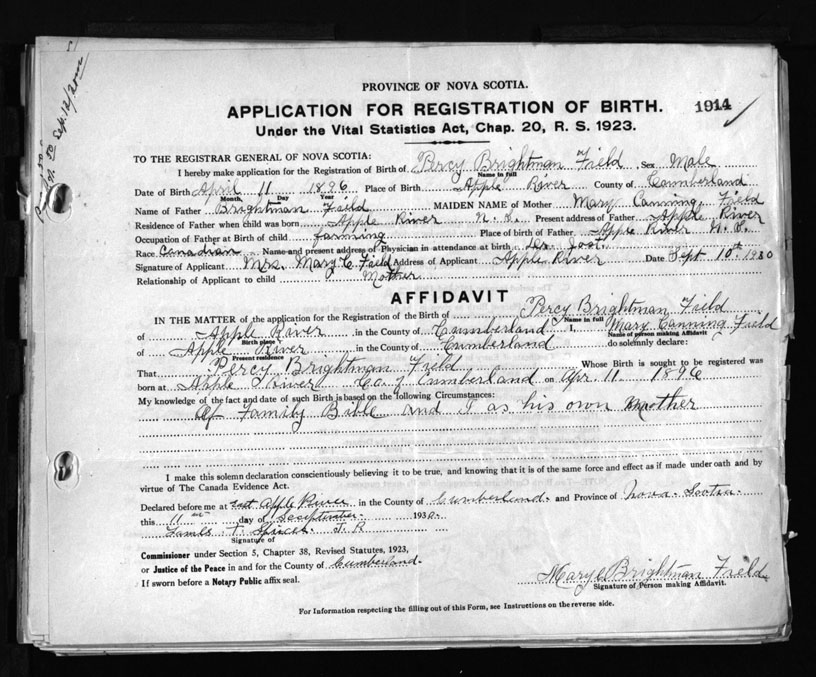 Sep. 12/30
PROVINCE OF NOVA SCOTIA.
APPLICATION FOR REGISTRATION OF BIRTH. 1914
Under the Vital Statistics Act, Chap. 20, R. S. 1923.
TO THE REGISTRAR GENERAL OF NOVA SCOTIA:
I hereby make application for the Registration of Birth of Percy Brightman Field Sex Male
Name in full
Date of Birth April 11 1896 Place of Birth Apple River County of Cumberland
Month, Day Year
Name of Father Brightman Field MAIDEN NAME of Mother Mary Canning Field
Residence of Father when child was born Apple River N. S. Present address of Father Apple River
Occupation of Father at Birth of child farming Place of birth of Father Apple River N. S.
Race Canadian Name and present address of Physician in attendance at birth
Signature of Applicant Mrs. Mary C. Field Address of Applicant Apple River Date Sept 10th 1930
Relationship of Applicant to child Mother
AFFIDAVIT
IN THE MATTER of the application for the Registration of the Birth of Percy Brightman Field
Name in full
of Apple River in the County of Cumberland I, Mary Canning Field
Birth place Name of person making Affidavit
of Apple River in the County of Cumberland do solemnly declare:
Present residence
That Percy Brightman Field Whose Birth is sought to be registered was
born at Apple River Co. of Cumberland on Apr. 11. 1896
My knowledge of the fact and date of such Birth is based on the following Circumstances:
Of Family Bible and I as his own Mother
I make this solemn declaration conscientiously believing it to be true, and knowing that it is of the same force and effect as if made under oath and by
virtue of The Canada Evidence Act.
Declared before me at East Apple River in the County of Cumberland. and Province of Nova Scotia
this 11 day of September 1930.
James T. Spicer J. P.
Signature of
Commissioner under Section 5, Chapter 38, Revised Statutes, 1923,
or Justice of the Peace in and for the County of Cumberland.
If sworn before a Notary Public affix seal.
Mary C Brightman Field
Signature of Person making Affidavit.
For Information respecting the filling out of this Form, see Instructions on the reverse side.